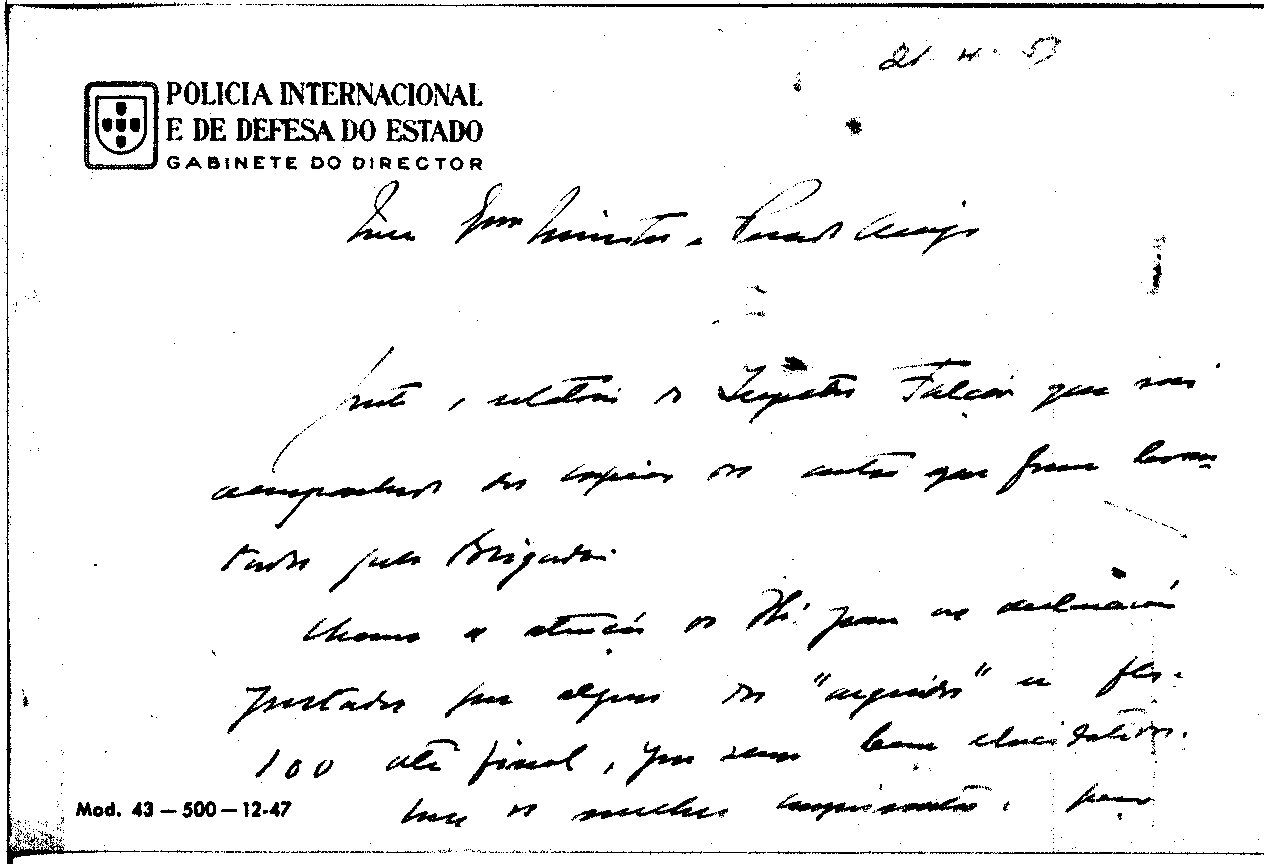 21-4-53
POLICIA INTERNACIONAL
E DE DEFESA DO ESTADO
GABINETE DO DIRECTOR
Meu Exmo Ministro e Presado Amigo
Junto o relatório do Inspector Falcão que vai
acompanhado das copias dos autos que foram levan-
tados pela Brigada.
Chamo a atenção de para as declarações
prestadas por alguns dos "arguidos" a fls.
100 até final, que sem bem elucidativas.
Com os melhores cumprimentos, 
Mod. 43 – 500 – 12-47